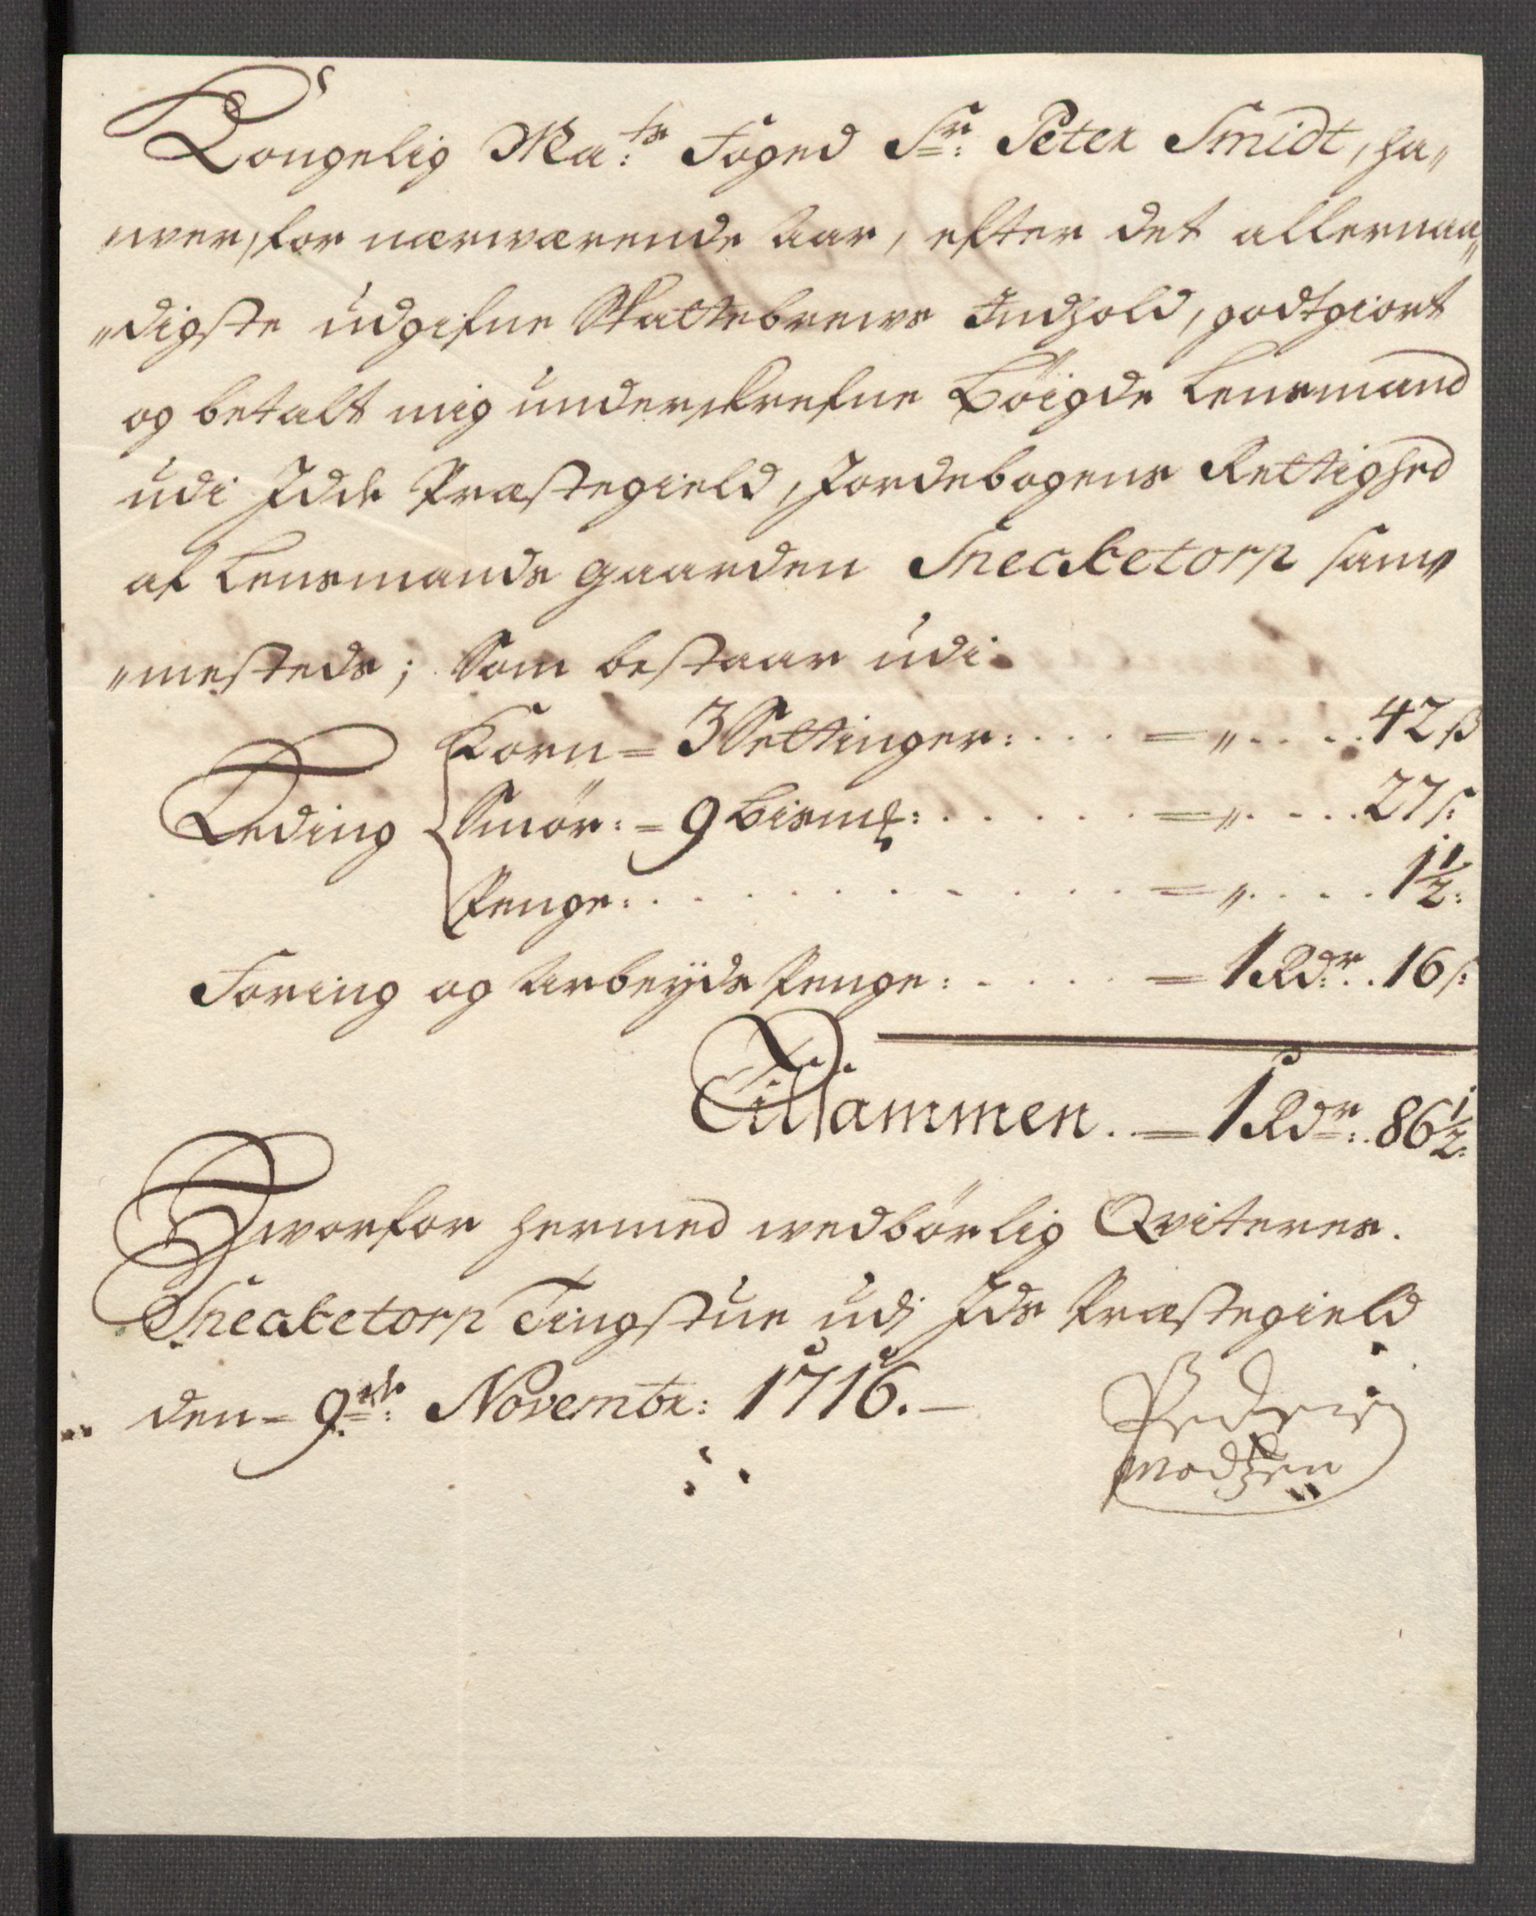 Kongelig Ma:ts Foged Sr: Peter Smidt, ha„
„wer, for nærwærende Aar, efter det allernaa„
„digste udgifne Skattebrews Indhold, godtgiort
og betalt mig underskrefne Böigde Lensmand
udi Idde Præstegield, Jordebogens Rettighed
af Lensmands gaarden Sneaketorp sam„
„mesteds; Som bestaar udi
Korn = 3 Settinger: . . . = „ . . . . 42 ß
Leding Smör: = 9 Bismß: . . . . . = „ . . . . 27 ß:
Penge: . . . . . . . . = „ . . . . 1½:
Foring og Arbeyds Penge: . . . . = 1 Rdr: . . 16 ß:
Tilsammen. = 1 Rdr: . 86½:
Hworfor hermed wedbörlig Qviteres.
Sneaketorp Tingstue udi Ids Præstegield
den = 9de: Novembr: 1716. –
Peder
Madsen